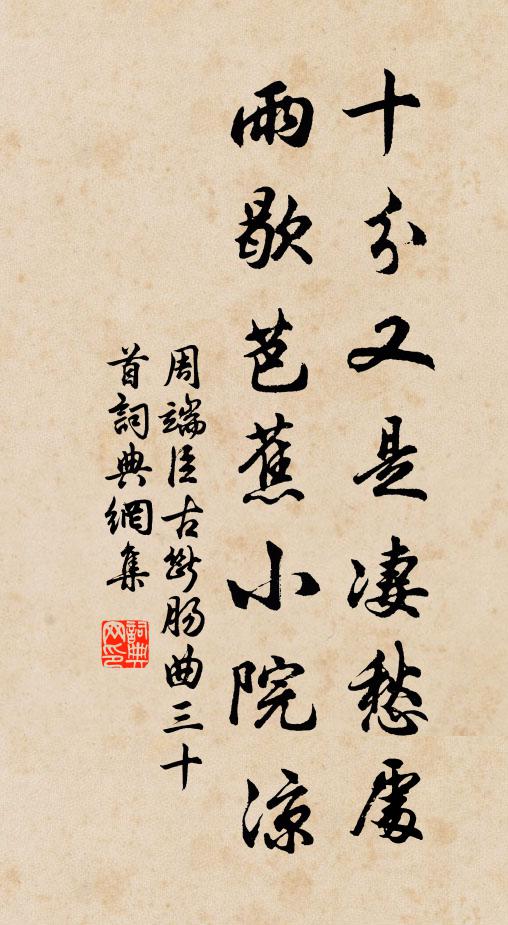 十分又是淒愁處
雨歇芭蕉小院涼
周端臣古斷腸曲三十
首詞典網集
詞典
网印